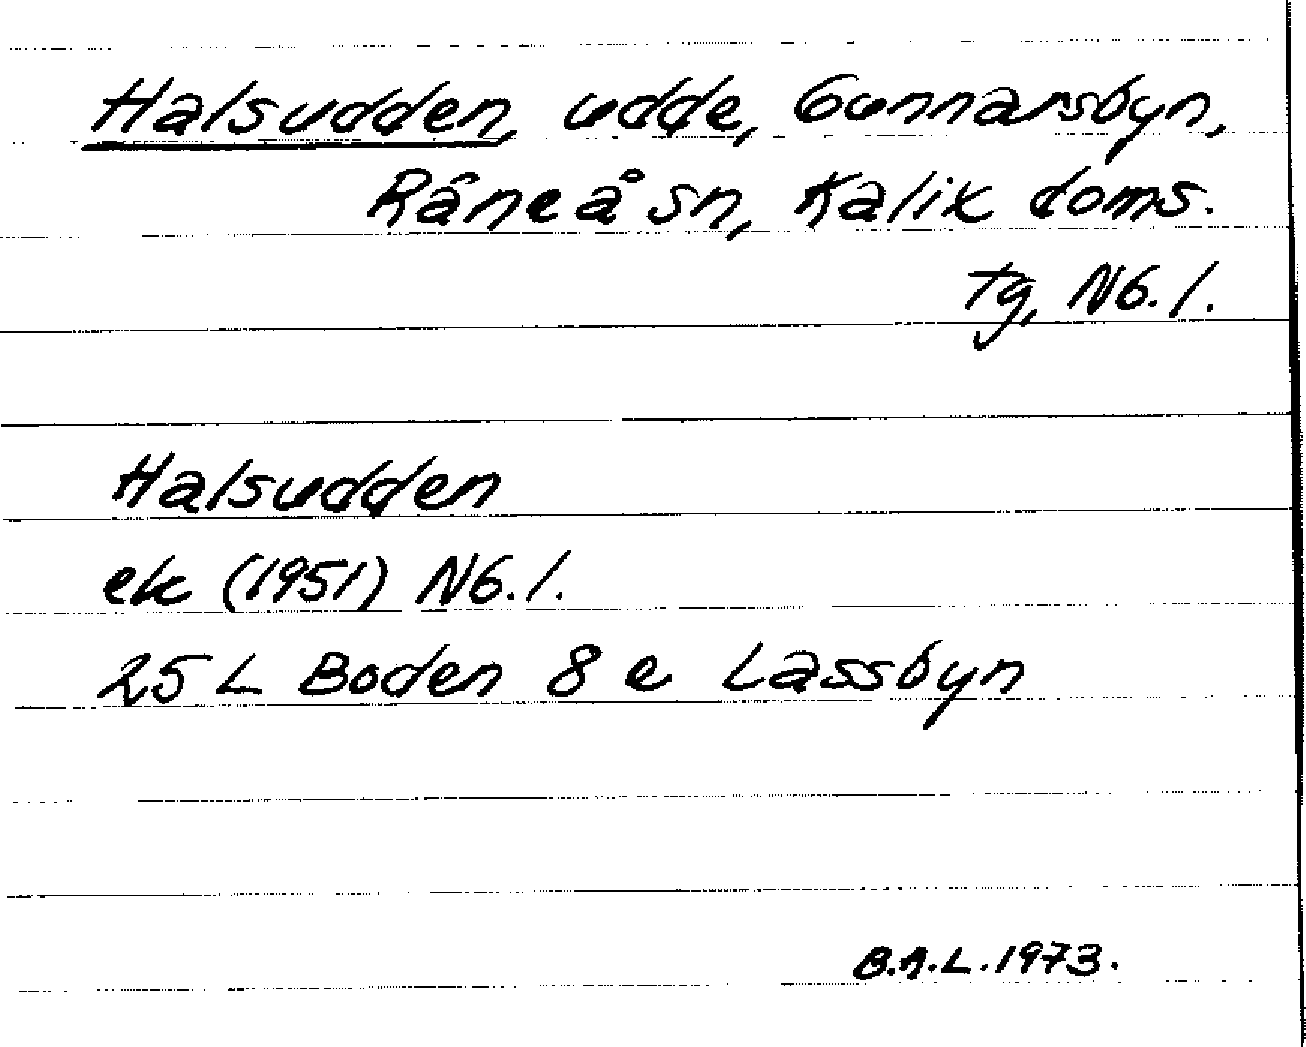 Halsudden, udde, Gunnarsbyn,
Råneå sn, Kalix doms.
tg, Nb. l.
Halsudden
ek (1951) Nb. l.
25 L Boden 8 e Lassbyn
B.A.L. 1973.